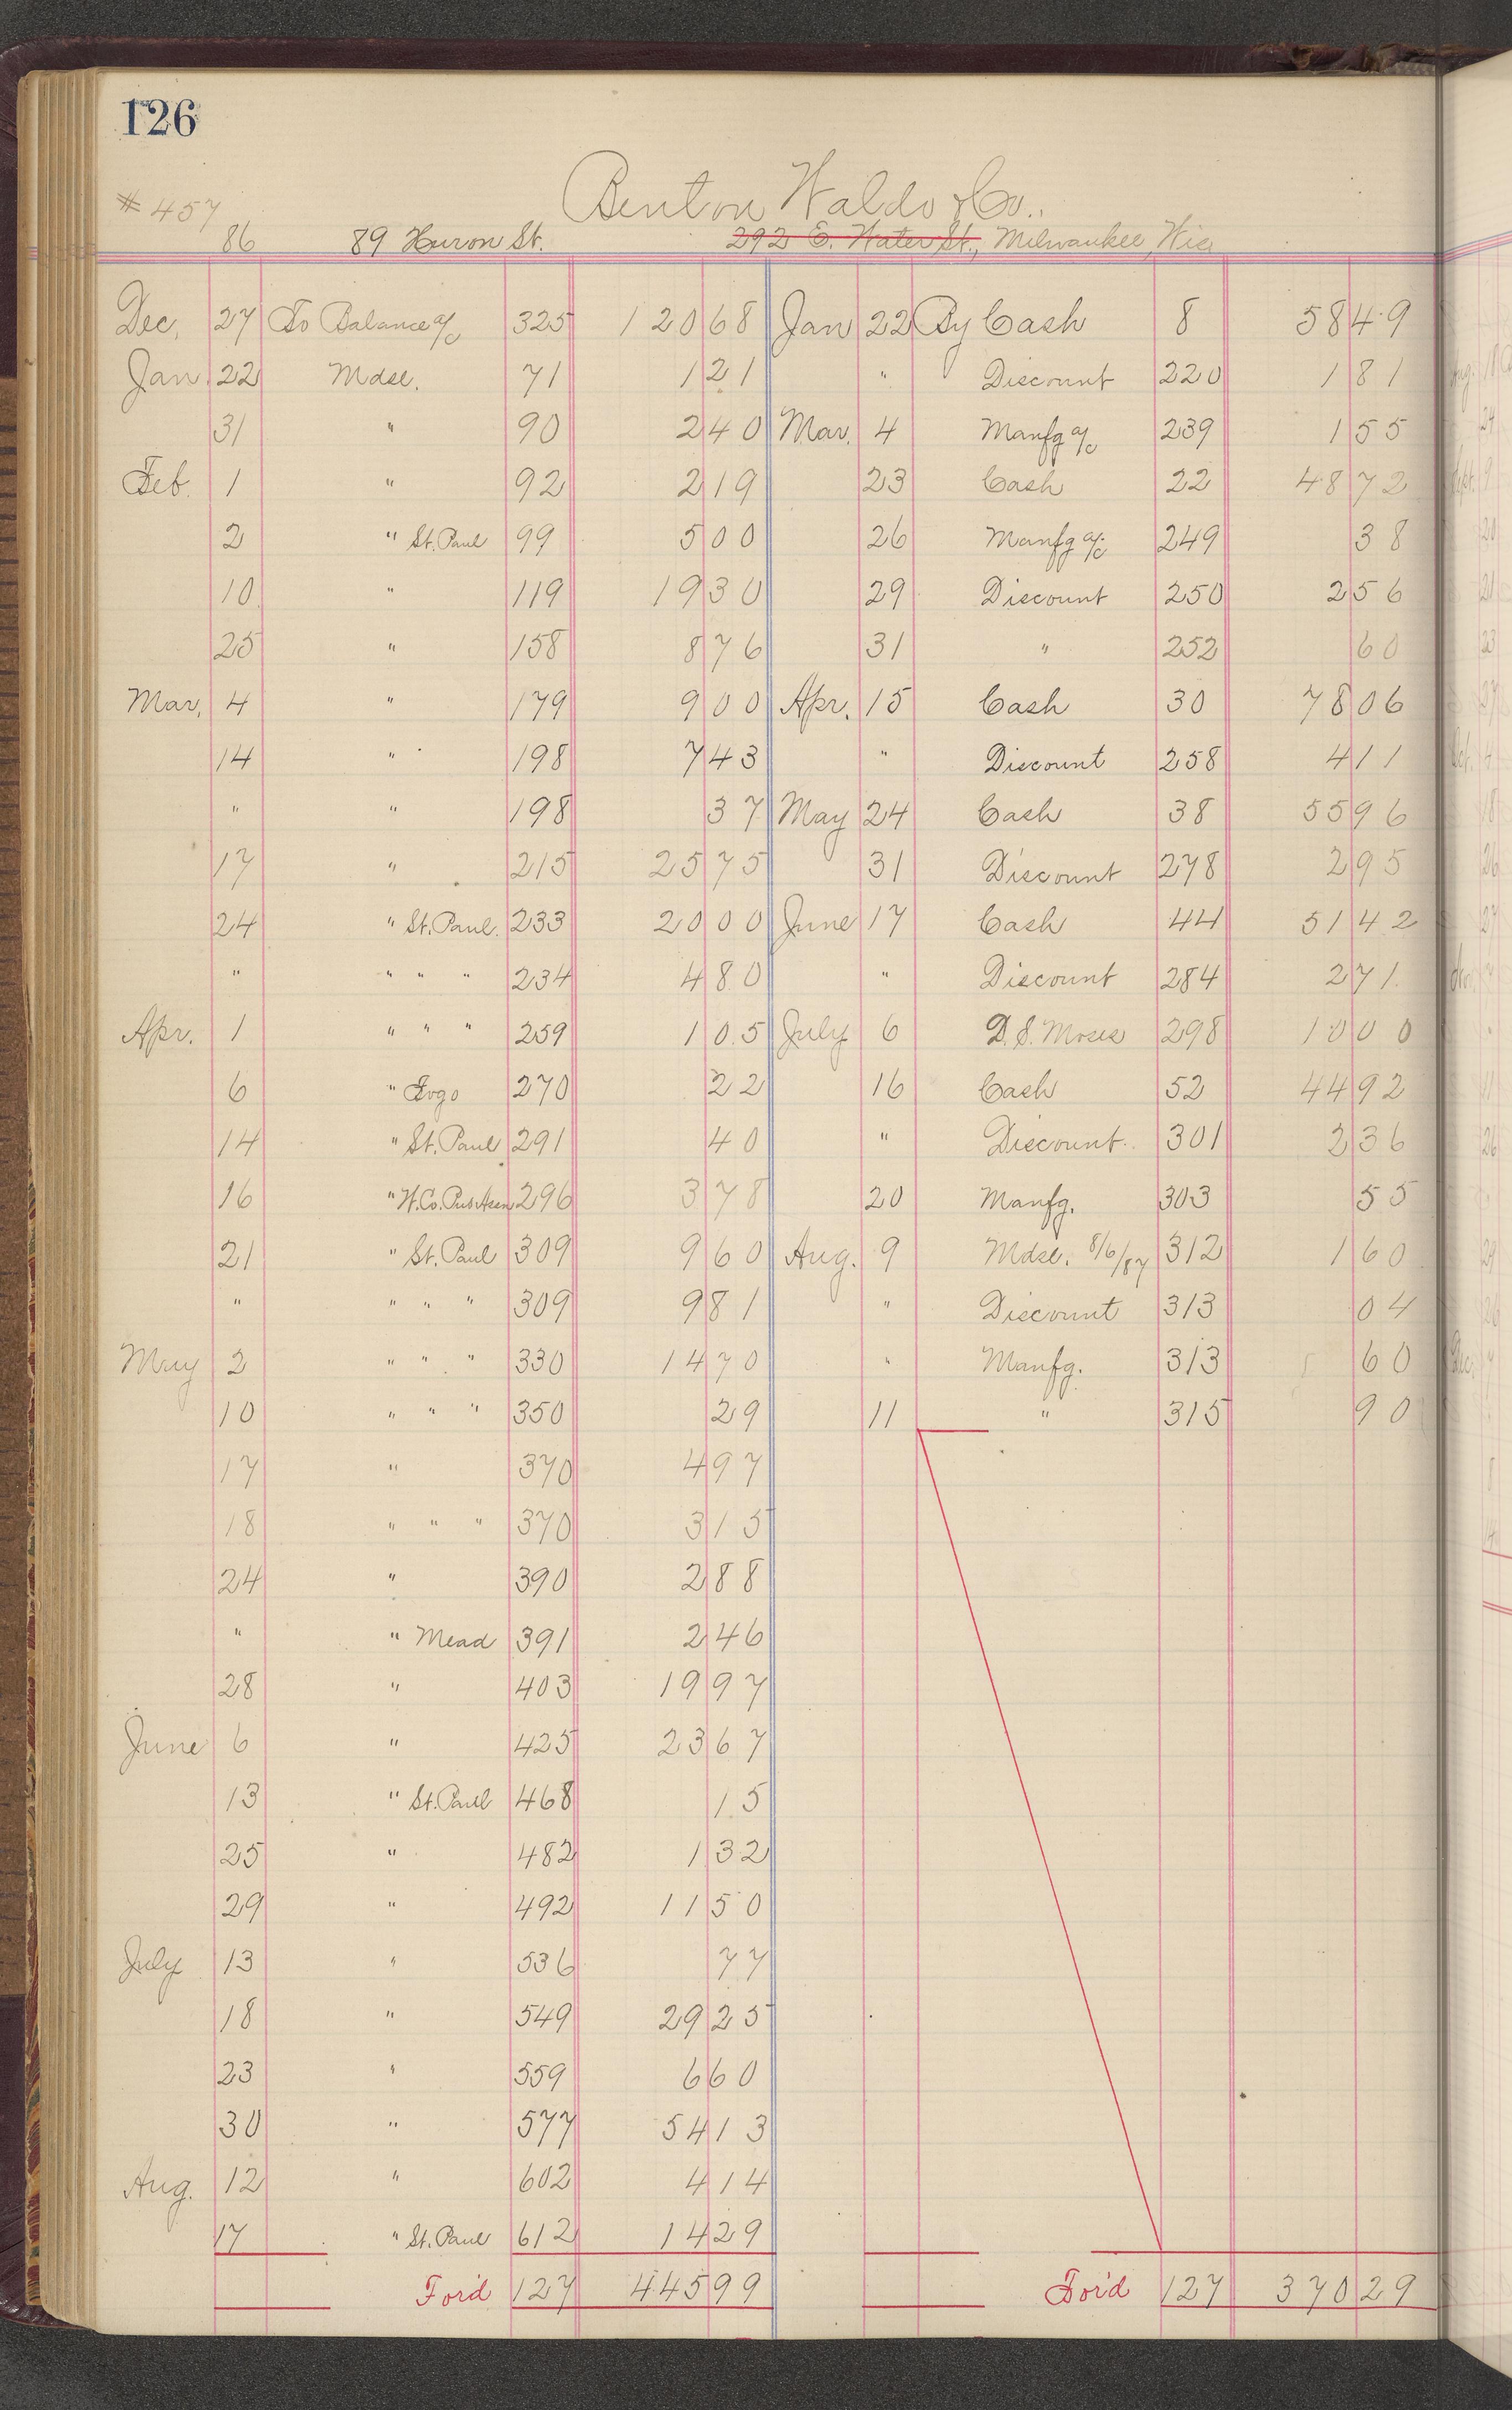 126
Benton Waldo & Co.,
# 457
86 89 Huron St. 292 E. Water St., Milwaukee, Wis
Dec. 27 To Balance a/c 325 120 68 Jan 22 By Cash 8 58 49
Jan. 22 Mdse. 71 1 21 " Discount 220 1 81
31 " 90 2 40 Mar. 4 Manfg a/c 239 1 55
Feb. 1 " 92 2 19 23 Cash 22 48 72
2 " St. Paul 99 5 00 26 Manfg a/c 249 38
10 " 119 19 30 29 Discount 250 2 56
25 " 158 8 76 31 " 252 60
Mar. 4 " 179 9 00 Apr. 15 Cash 30 78 06
14 " 198 7 43 " Discount 258 4 11
" " 198 37 May 24 Cash 38 55 96
17 " 215 25 75 31 Discount 278 2 95
24 " St. Paul. 233 20 00 June 17 Cash 44 51 42
" " " " 234 4 80 " Discount 284 2 71
Apr. 1 " " " 259 1 05 July 6 D. S. Moses 298 10 00
6 " 270 22 16 Cash 52 44 92
14 " St. Paul 291 40 " Discount 301 2 36
16 " 296 3 78 20 Manfg. 303 55
21 " St. Paul 309 9 60 Aug. 9 Mdse. 8/6/87 312 1 60
" " " " 309 9 81 " Discount 313 04
May 2 " " " 330 14 70 " Manfg. 313 60
10 " " " 350 29 11 " 315 90
17 " 370 4 97
18 " " " 370 3 15
24 " 390 2 88
" " Mead 391 2 46
28 " 403 19 97
June 6 " 425 23 67
13 " St. Paul 468 15
25 " 482 1 32
29 " 492 11 50
July 13 " 536 77
18 " 549 29 25
23 " 559 6 60
30 " 577 54 13
Aug. 12 " 602 4 14
17 " St. Paul 612 14 29
For'd 127 445 99 For'd 127 370 29